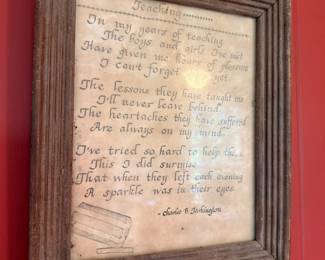 Teaching...........
In my years of teaching
The boys and girls I've met
Have given me hours of pleasure
I can't forget yet.
The lessons they have taught me
I'll never leave behind.
The heartaches they have suffered
Are always on my mind.
I've tried so hard to help them
This I did surmise
That when they left each evening
A sparkle was in their eyes.
- Charles B.